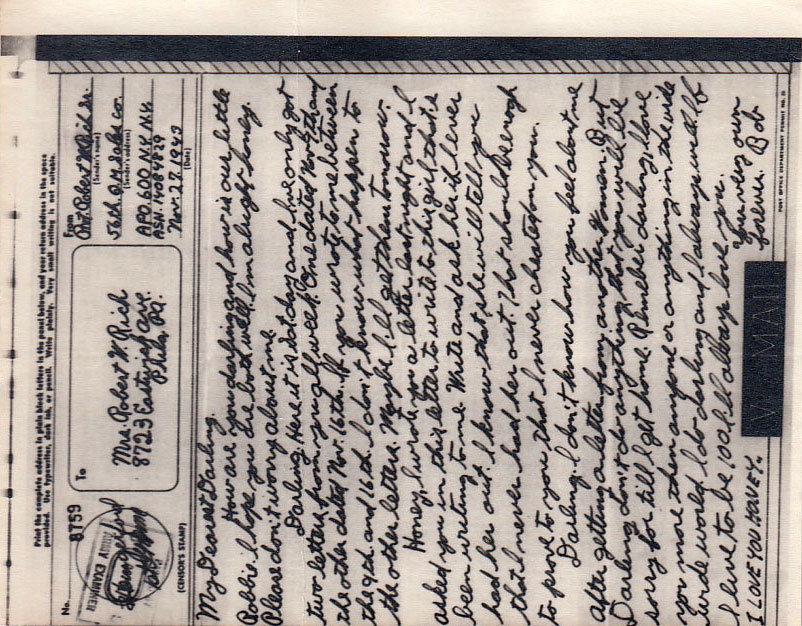 Print the complete address in plain block letters in the panel below, and your return address in the space
provided. Use typewriter, dark ink, or pencil. Write plainly. Very small writing is not suitable.
No. 8759
(CENSOR'S STAMP)
ARMY EXAMINER
To
Mrs. Robert W Rich
8723 Eastwick ave.
Phila, Pa.
From
Pvt. Robert W Rich Sr.
(Sender's name)
Q.M. Sales Co.
(Sender's address)
APO 600 N.Y. N.Y.
ASN.
Nov. 27. 1943
(Date)
My Dearest Darling.
How are you darling and how is our little
Robbie. I hope you are both well. I'm alright honey.
Please don't worry about me.
Darling. Here it is Sat day and I've only got
two letters from you all week. One dated Nov 7th and
the other dated Nov. 16th. If you wrote to me between
the 9th and 16th I don't know what happen to
the other letters. Maybe I'll get them tomorrow.
Honey, I wrote you a letter last night and I
asked you in this letter to write to this girl that's
been writing to me. Write and ask her if I ever
had her out. I know that she will tell you
that I never had her out. That should be enough
to prove to you that I never cheated on you.
Darling, I don't know how you feel about me
after getting a letter from another women. But
Darling don't do anything that you will be
sorry for till I get home. Remeber darling, I love
you more then anyone or anything in the wide
world. I do darling and I always will. If
I live to be 100 I'll always love you.
I LOVE YOU HONEY.
Your very own
forever. Bob
V··· — MAIL
POST OFFICE DEPARTMENT PERMIT NO.